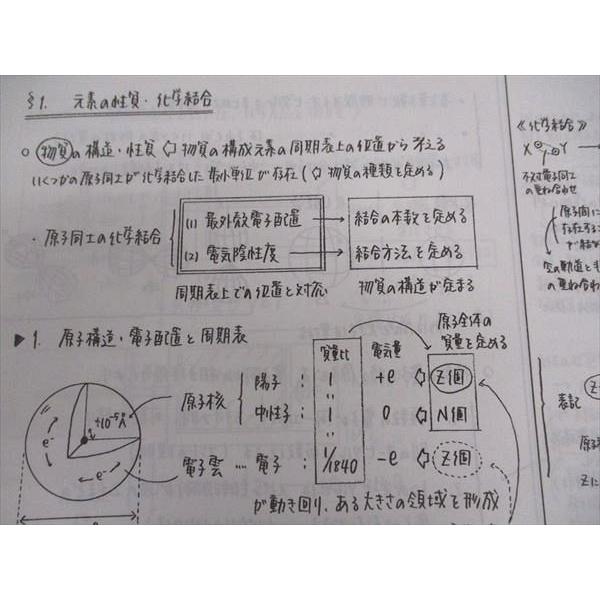 §1. 元素の性質・化学結合
○ 物質の構造・性質 ⇦ 物質の構成元素の周期表上の位置から考える
いくつかの原子同士が化学結合した最小単位が存在(⇦ 物質の種類を定める)
・原子同士の化学結合
(1) 最外殻電子配置 → 結合の本数を定める
(2) 電気陰性度 → 結合方法を定める
周期表上での位置と対応 物質の構造が定まる
▶ 1. 原子構造・電子配置と周期表
原子全体の
質量を定める
質量比 電気量
原子核
陽子 : 1 +e ⇦ Z個
中性子 : 1 0 ⇦ N個
電子雲 … 電子 : 1/1840 -e ⇦ Z個
が動き回り、ある大きさの領域を形成
e⁻
e⁻
≪化学結合≫
X Y
不対電子同士
の重ね合わせ
原子間に
存在する
が結
空の軌道と
の重ね合わ
表記
原子
Zに